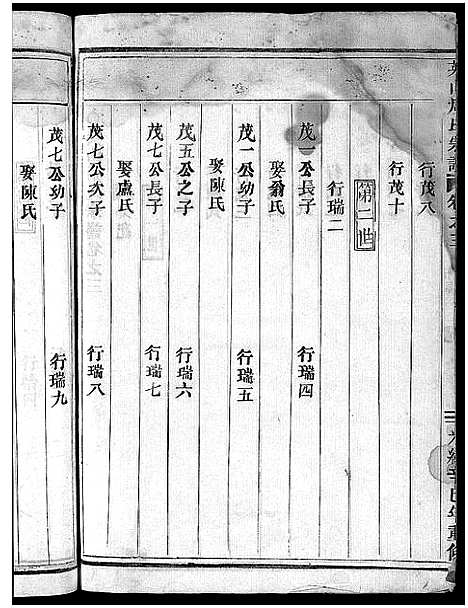 行茂八
行茂十
第二世
行瑞二
茂一公長子 行瑞四
娶翁氏
茂一公幼子 行瑞五
娶陳氏
茂五公之子 行瑞六
茂七公長子 行瑞七
娶盧氏
茂七公次子 行瑞八
娶陳氏
茂七公幼子 行瑞九